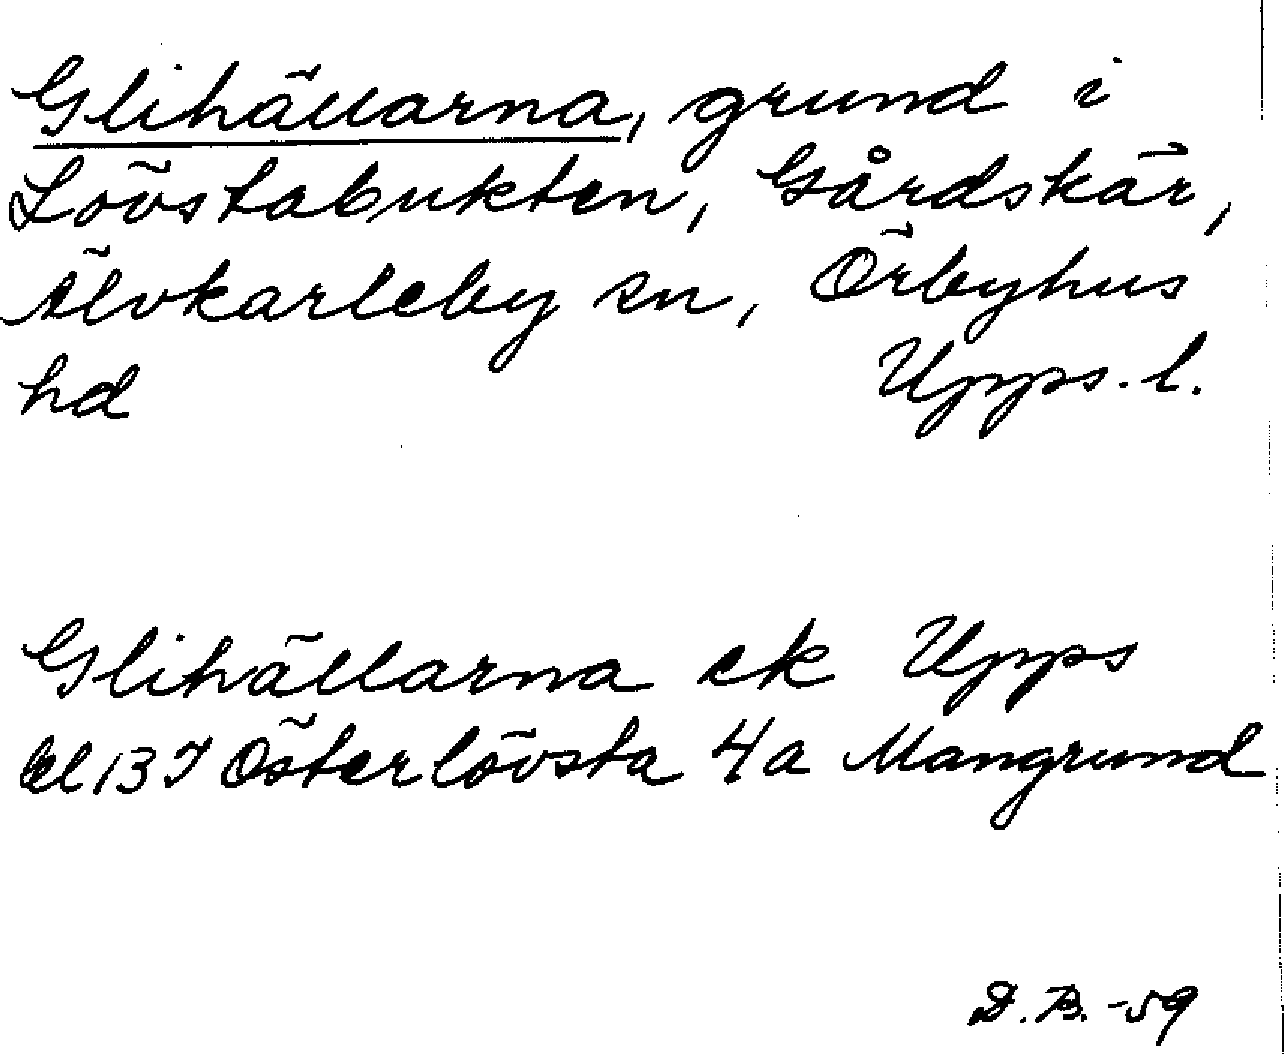 Glihällarna, grund i
Lövstabukten, Gårdskär,
Älvkarleby sn, Örbyhus
hd Upps. l.
Glihällarna ek Upps
bl 13 I Österlövsta 4a Mangrund
D. B. -59